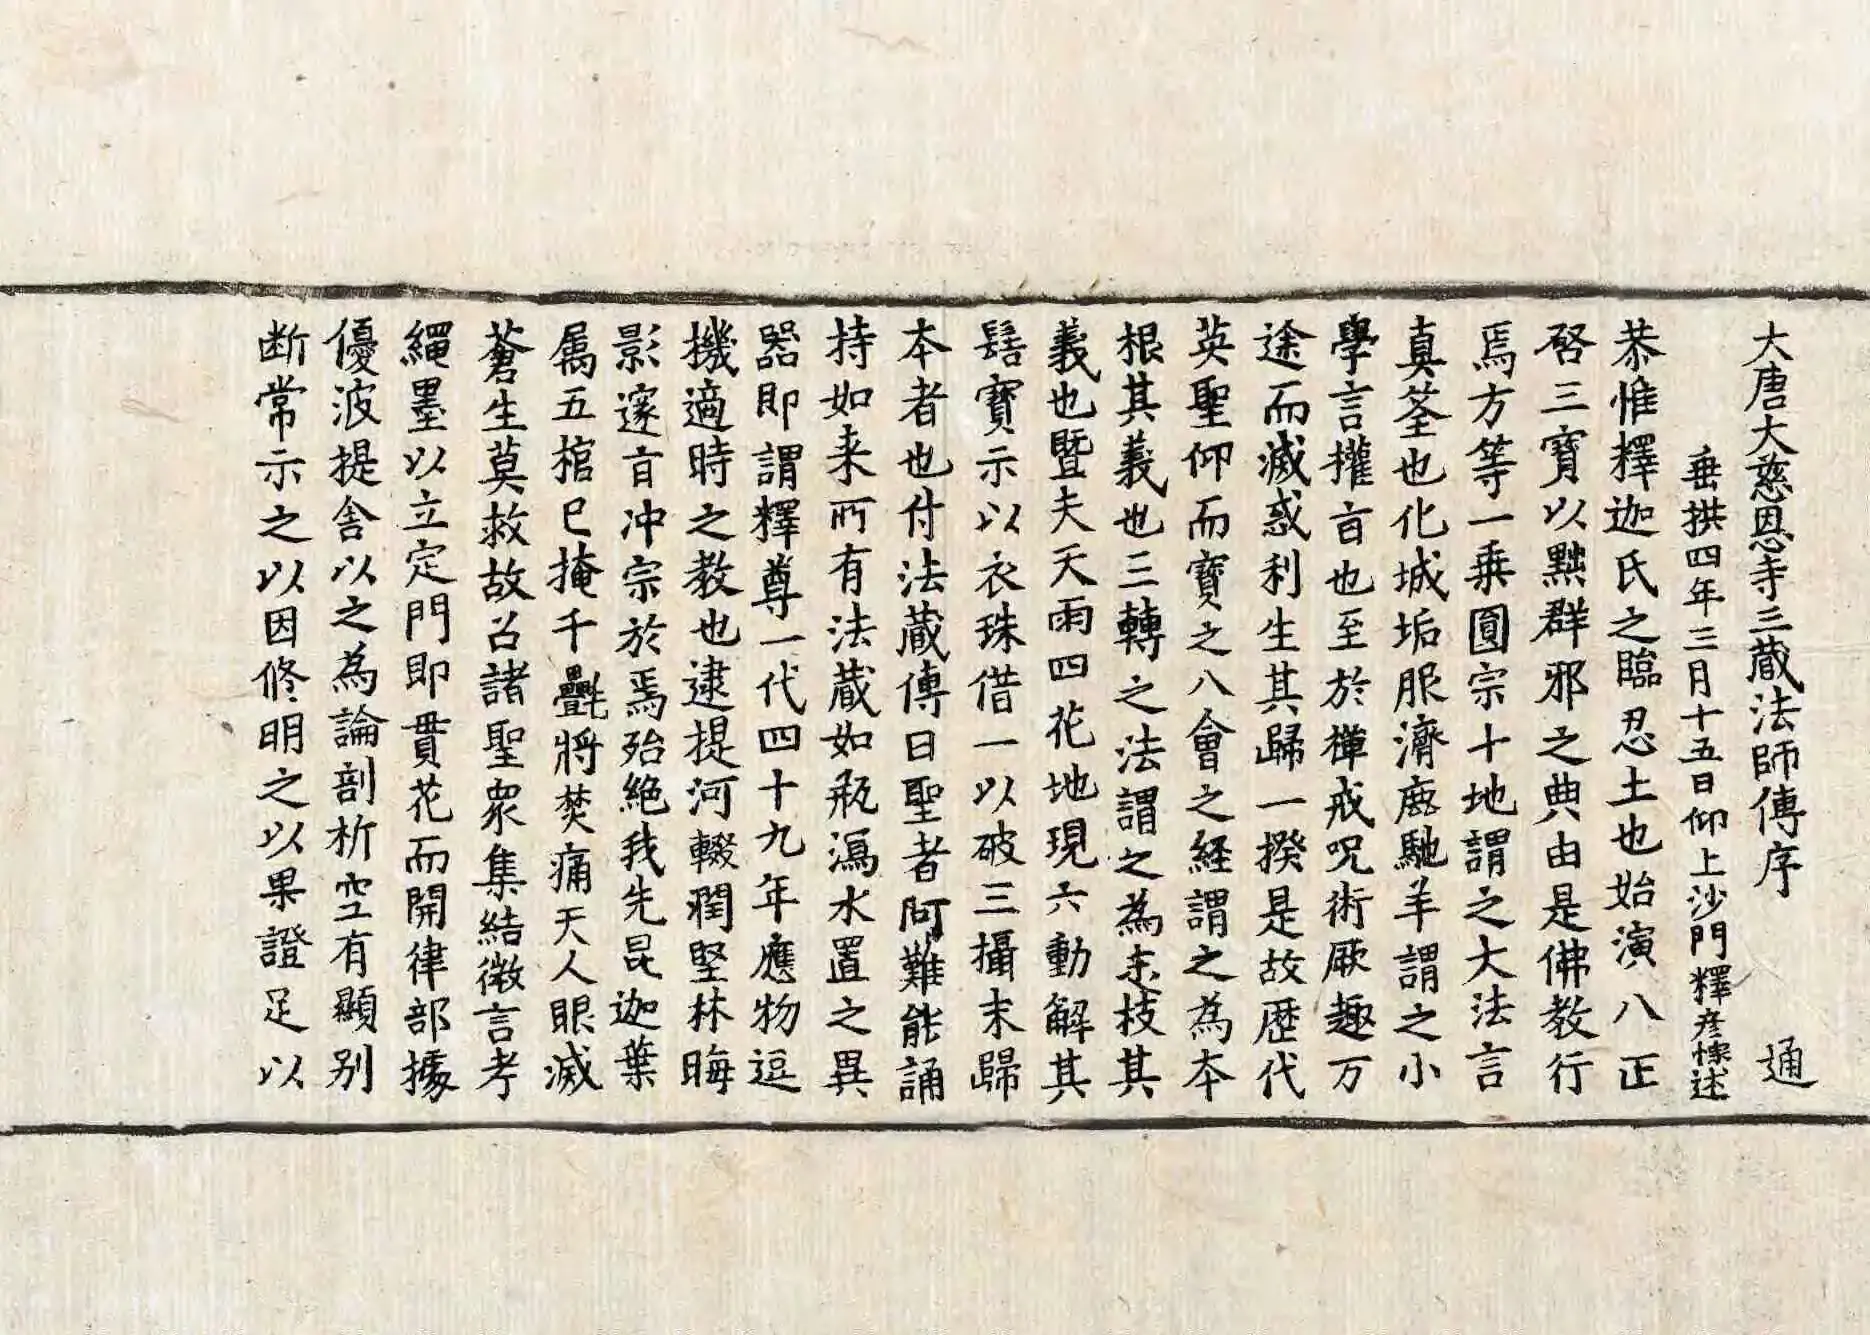 大唐大慈恩寺三藏法師傳序 通
垂拱四年三月十五日仰上沙門釋彦悰述
恭惟釋迦氏之臨忍土也始演八正
啓三寶以黜群邪之典由是佛教行
焉方等一乗圓宗十地謂之大法言
真筌也化城垢服濟鹿馳羊謂之小
學言權㫖也至於禪戒呪術厥趣万
途而滅惑利生其歸一揆是故歴代
英聖仰而寶之八會之経謂之為本
根其義也三轉之法謂之為末枝其
義也暨夫天雨四花地現六動解其
髻寶示以衣珠借一以破三攝末歸
本者也付法蔵傳曰聖者阿難能誦
持如来所有法蔵如瓶瀉水置之異
器即謂釋尊一代四十九年應物逗
機適時之教也逮提河輟潤堅林晦
影邃㫖沖宗於焉殆絶我先昆迦葉
属五棺已掩千㲲將焚痛天人眼滅
蒼生莫救故召諸聖衆集結微言考
繩墨以立定門即貫花而開律部據
優波提舎以之為論剖析空有顯別
断常示之以因修明之以果證足以